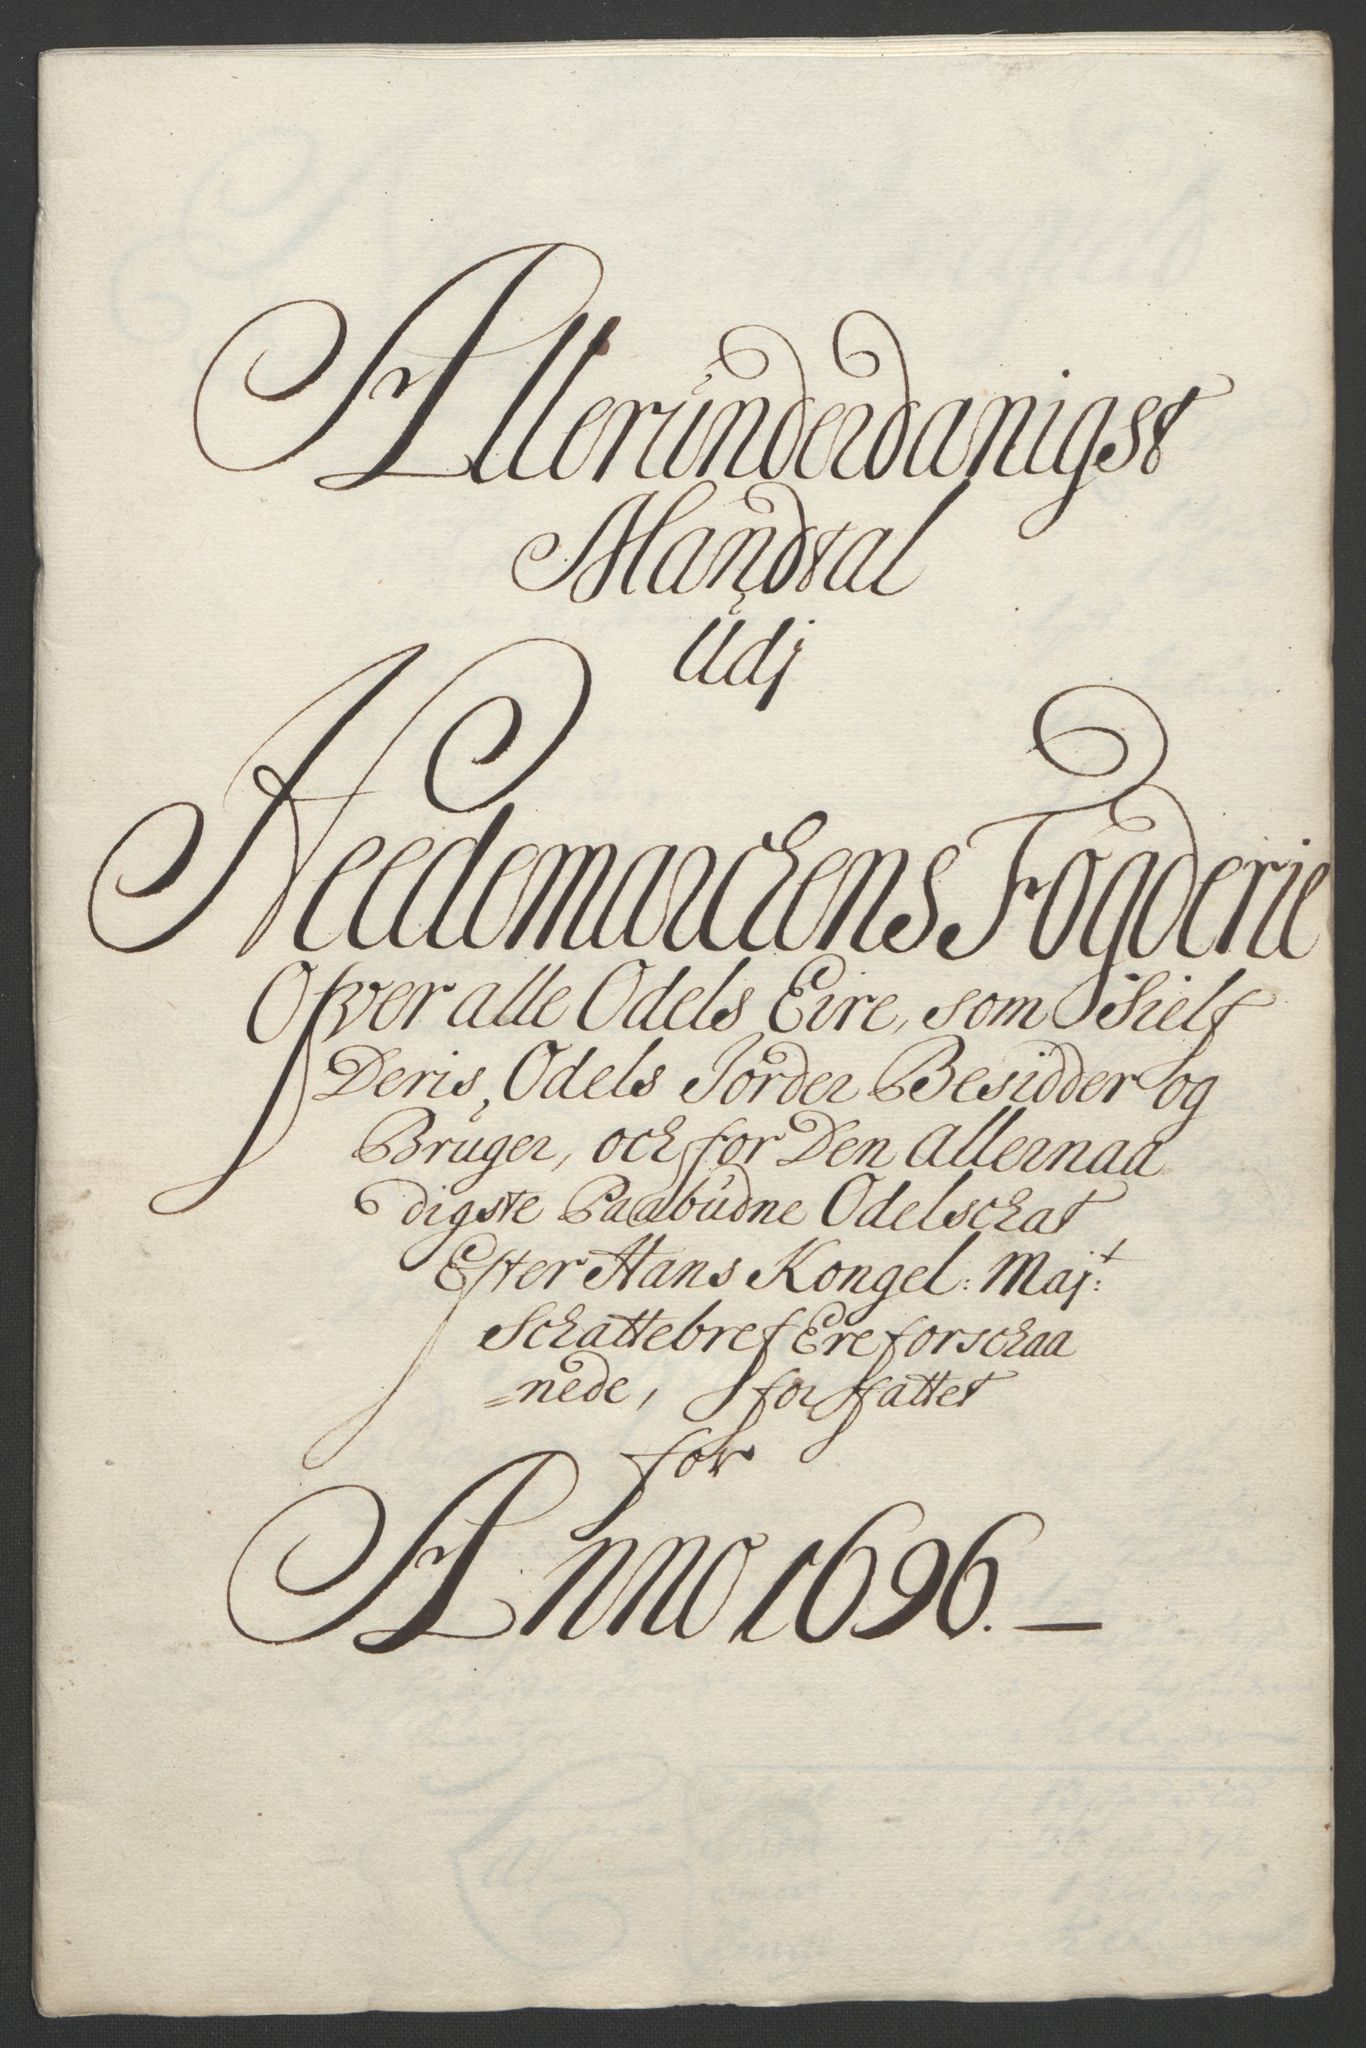 Allerunderdanigst
Mandtal
Udj
Heedemarckens Fogderie
Ofver alle Odels Eire, som Sielf
Deris Odels Jorder Besidder og
Bruger, och for Den allernaa
digste Paabudne Odelschat
Efter Hans Kongel: Maj:t
Schattebref Ere forschaa
=nede, forfattet
for
Anno 1696. —